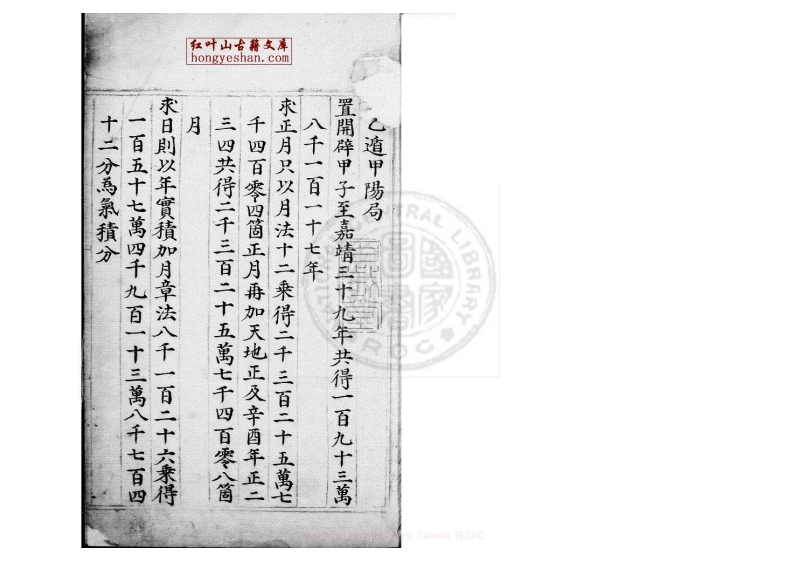 红叶山古籍文库
hongyeshan.com
乙遁甲陽局
置開辟甲子至嘉靖三十九年共得一百九十三萬
八千一百一十七年
求正月只以月法十二乘得二千三百二十五萬七
千四百零四箇正月再加天地正及辛酉年正二
三四共得二千三百二十五萬七千四百零八箇
月
求日則以年實積加月章法八千一百二十六乘得
一百五十七萬四千九百一十三萬八千七百四
十二分為氣積分
國家圖書館
CENTRAL LIBRARY
R.O.C.
Library, Taiwan, R.O.C.